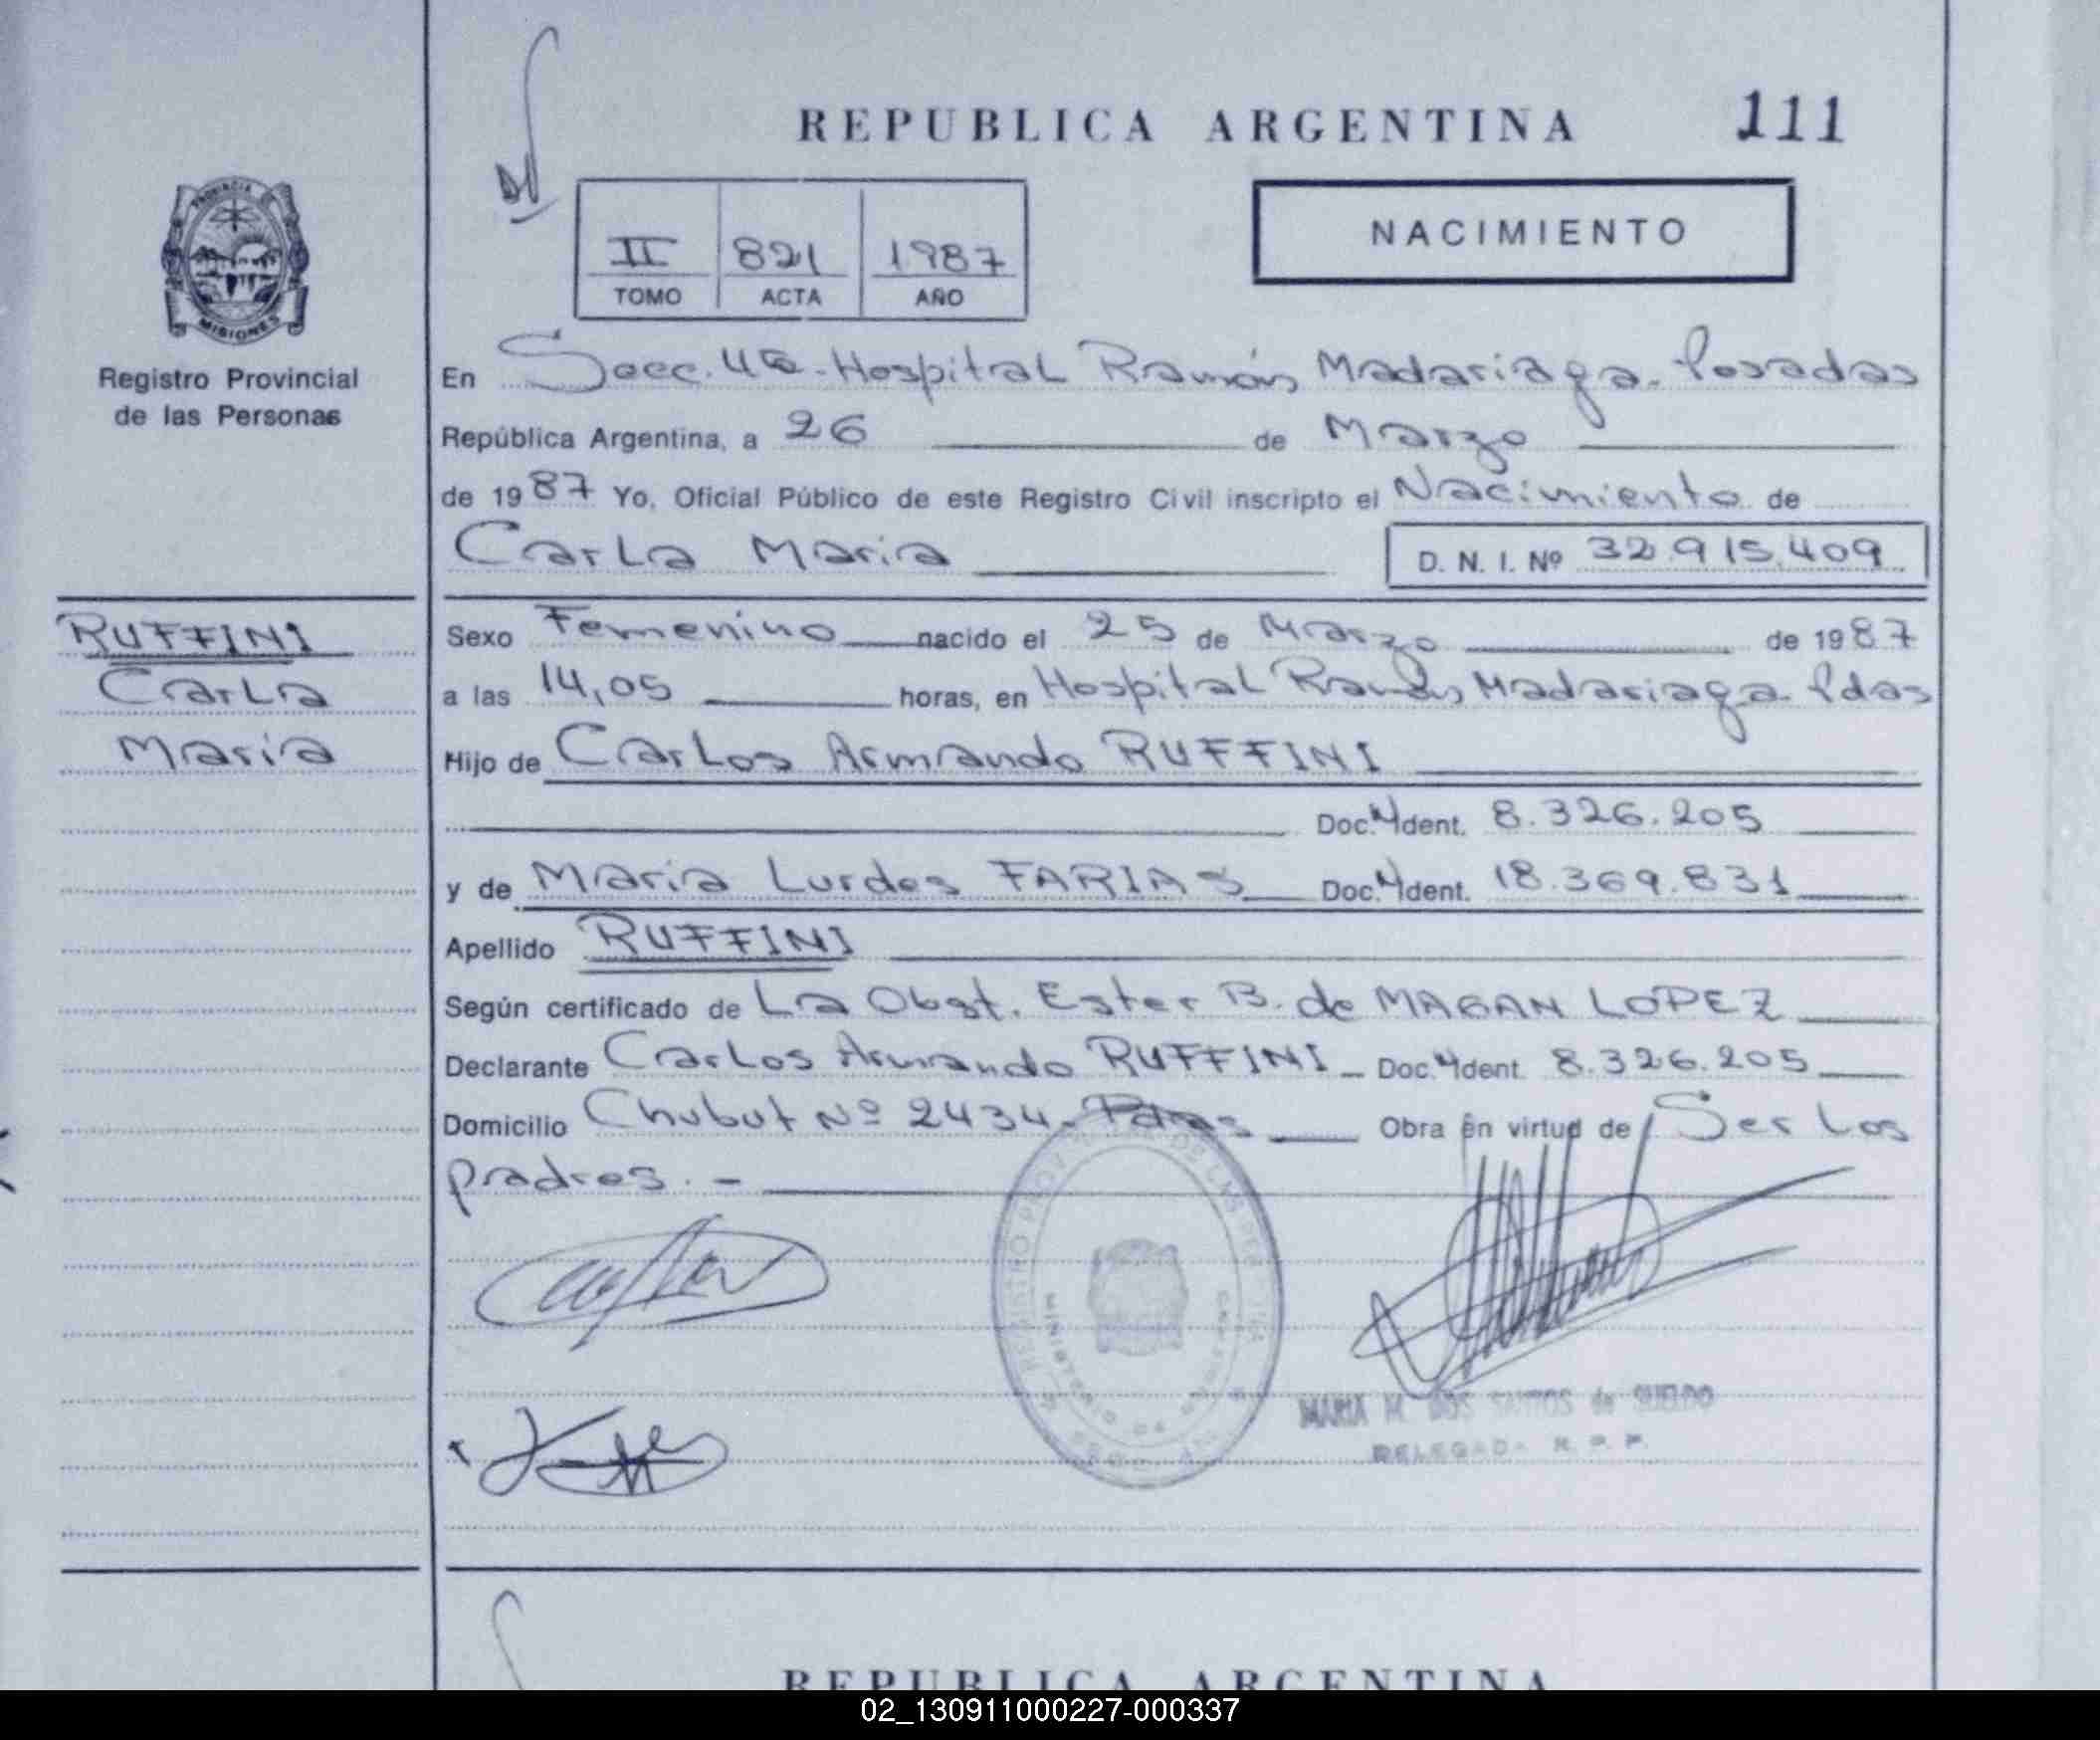 REPUBLICA ARGENTINA 111
PROVINCIA
MISIONES
Registro Provincial
de las Personas
II 821 1987
TOMO ACTA AÑO
NACIMIENTO
En Secc. 4a. Hospital Ramón Madariaga. Posadas
República Argentina, a 26 de Marzo
de 1987 Yo, Oficial Público de este Registro Civil inscripto el Nacimiento de
Carla Maria D. N. I. Nº 32.915.409
RUFFINI
Carla
Maria
Sexo Femenino nacido el 25 de Marzo de 1987
a las 14,05 horas, en Hospital Ramón Madariaga Pdas
Hijo de Carlos Armando RUFFINI
Doc. Ident. 8.326.205
y de Maria Lurdes FARIAS Doc. Ident. 18.369.831
Apellido RUFFINI
Según certificado de La Obst. Ester B. de MAGAN LOPEZ
Declarante Carlos Armando RUFFINI Doc. Ident. 8.326.205
Domicilio Chubut Nº 2434. Pdas Obra en virtud de Ser los
padres. -
MARIA M. DOS SANTOS de SUELDO
DELEGADA R. P. P.
REPUBLICA ARGENTINA
02_130911000227-000337